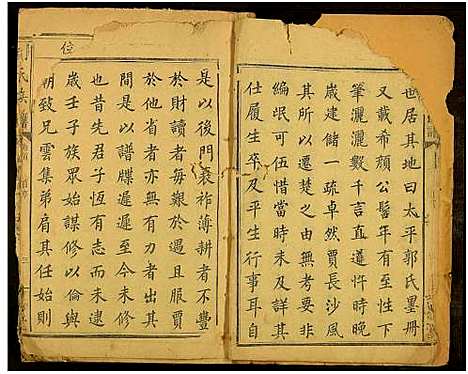 世居其地曰太平郭氏墨冊
又載希顏公髫年有至性下
筆灑灑數千言直道忤時晚
歲建儲一疏卓然賈長沙風
其所以遷楚之由無考要非
編氓可伍惜當時未及詳其
仕履生卒及平生行事耳自
是以後門衰祚薄耕者不豐
於財讀者每艱於遇且服賈
於他省者亦有年或聚或散
間是以譜牒遲遲至今未修
也昔先君子恆有志而未逮
歲壬子族眾始謀修以倫與
胡致兄雲集弟肩其任始則